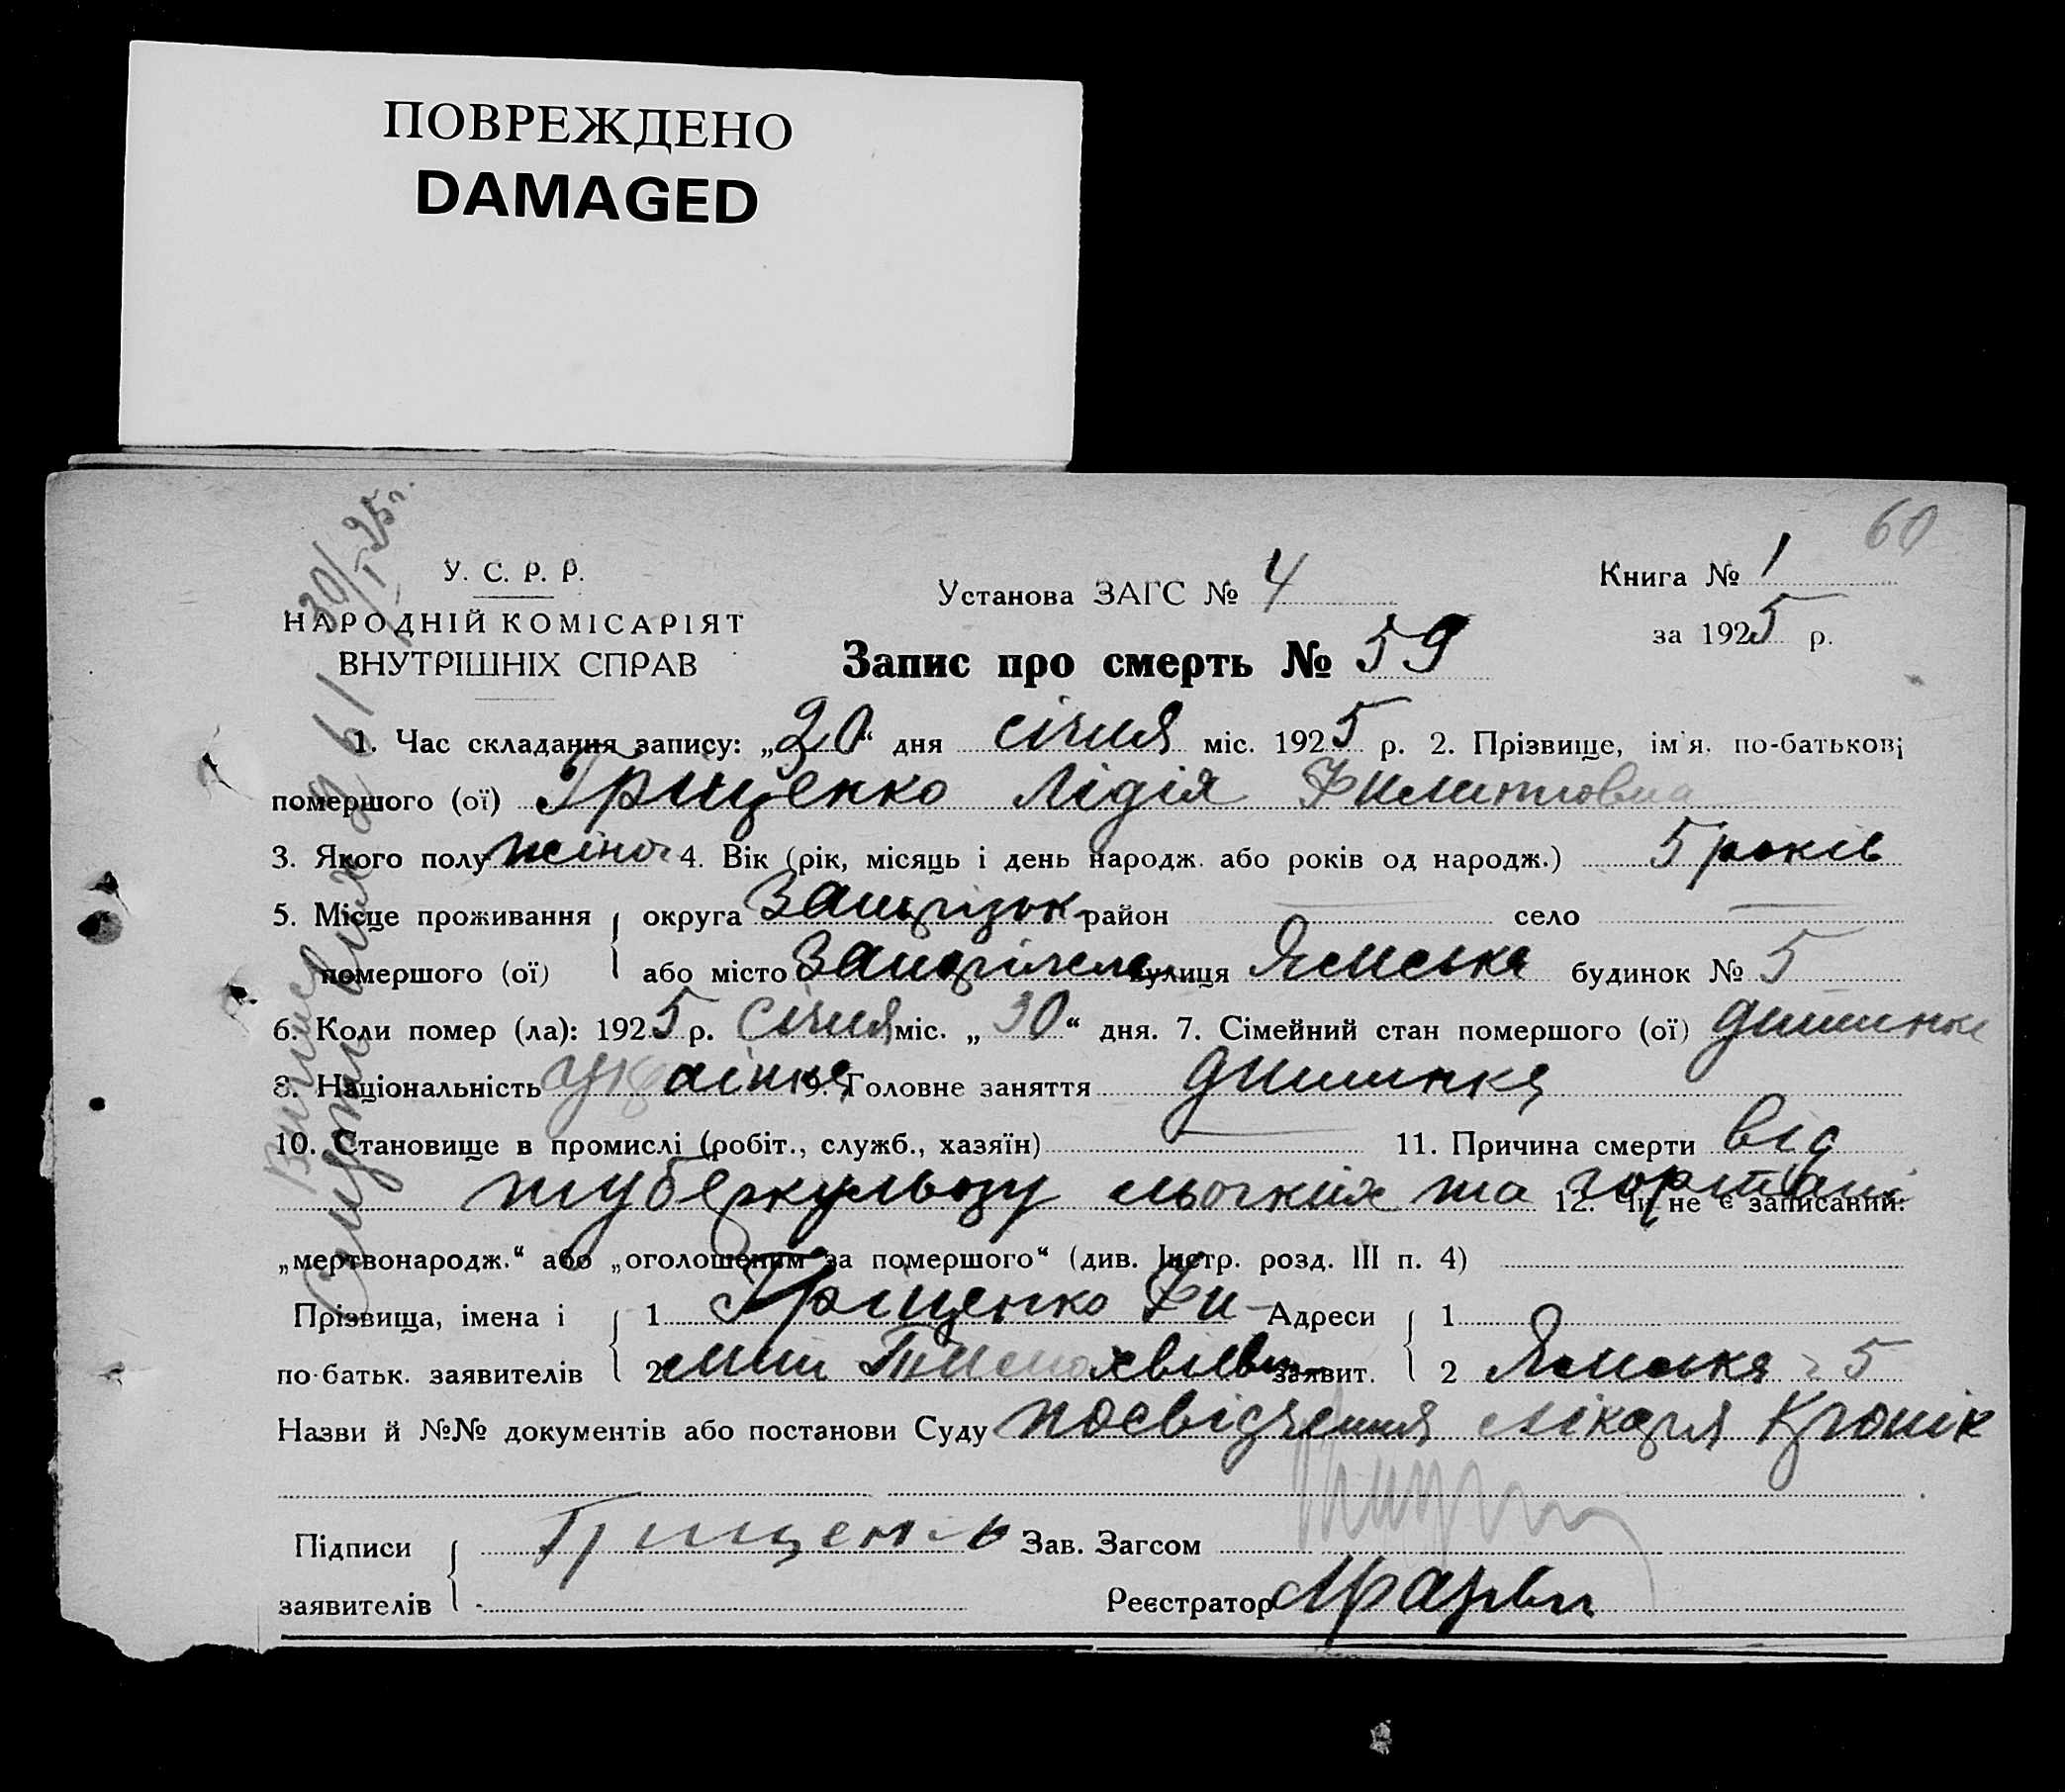 ПОВРЕЖДЕНО
DAMAGED
60
У. С. Р. Р.
НАРОДНІЙ КОМІСАРІЯТ
ВНУТРІШНІХ СПРАВ
Установа ЗАГС № 4
Книга № 1
за 1925 р.
Запис про смерть № 59
1. Час складання запису: „30“ дня січня міс. 1925 р. 2. Прізвище, ім'я, по-батькові
помершого (ої) Гріщенко Лідія
3. Якого полу жіноч 4. Вік (рік, місяць і день народж. або років од народж.) 5 років
5. Місце проживання помершого (ої) округа район — село —
або місто вулиця Ямська будинок № 5
6. Коли помер (ла): 1925 р. Січня міс. „30“ дня. 7. Сімейний стан помершого (ої) дитинка
8. Національність Українка 9. Головне заняття дитинка
10. Становище в промислі (робіт., служб., хазяїн) — 11. Причина смерти від
туберкульозу льогких та гортані 12. Чи не є записаний:
„мертвонародж.“ або „оголошеним за помершого“ (див. Інстр. розд. III п. 4)
Прізвища, імена і 1 Гріщенко Фи- Адреси 1
по-батьк. заявителів 2 заявит. 2 Ямська 5
Назви й №№ документів або постанови Суду посвідчення лікаря Кронік
Підписи Грищенко Зав. Загсом
заявителів Реєстратор